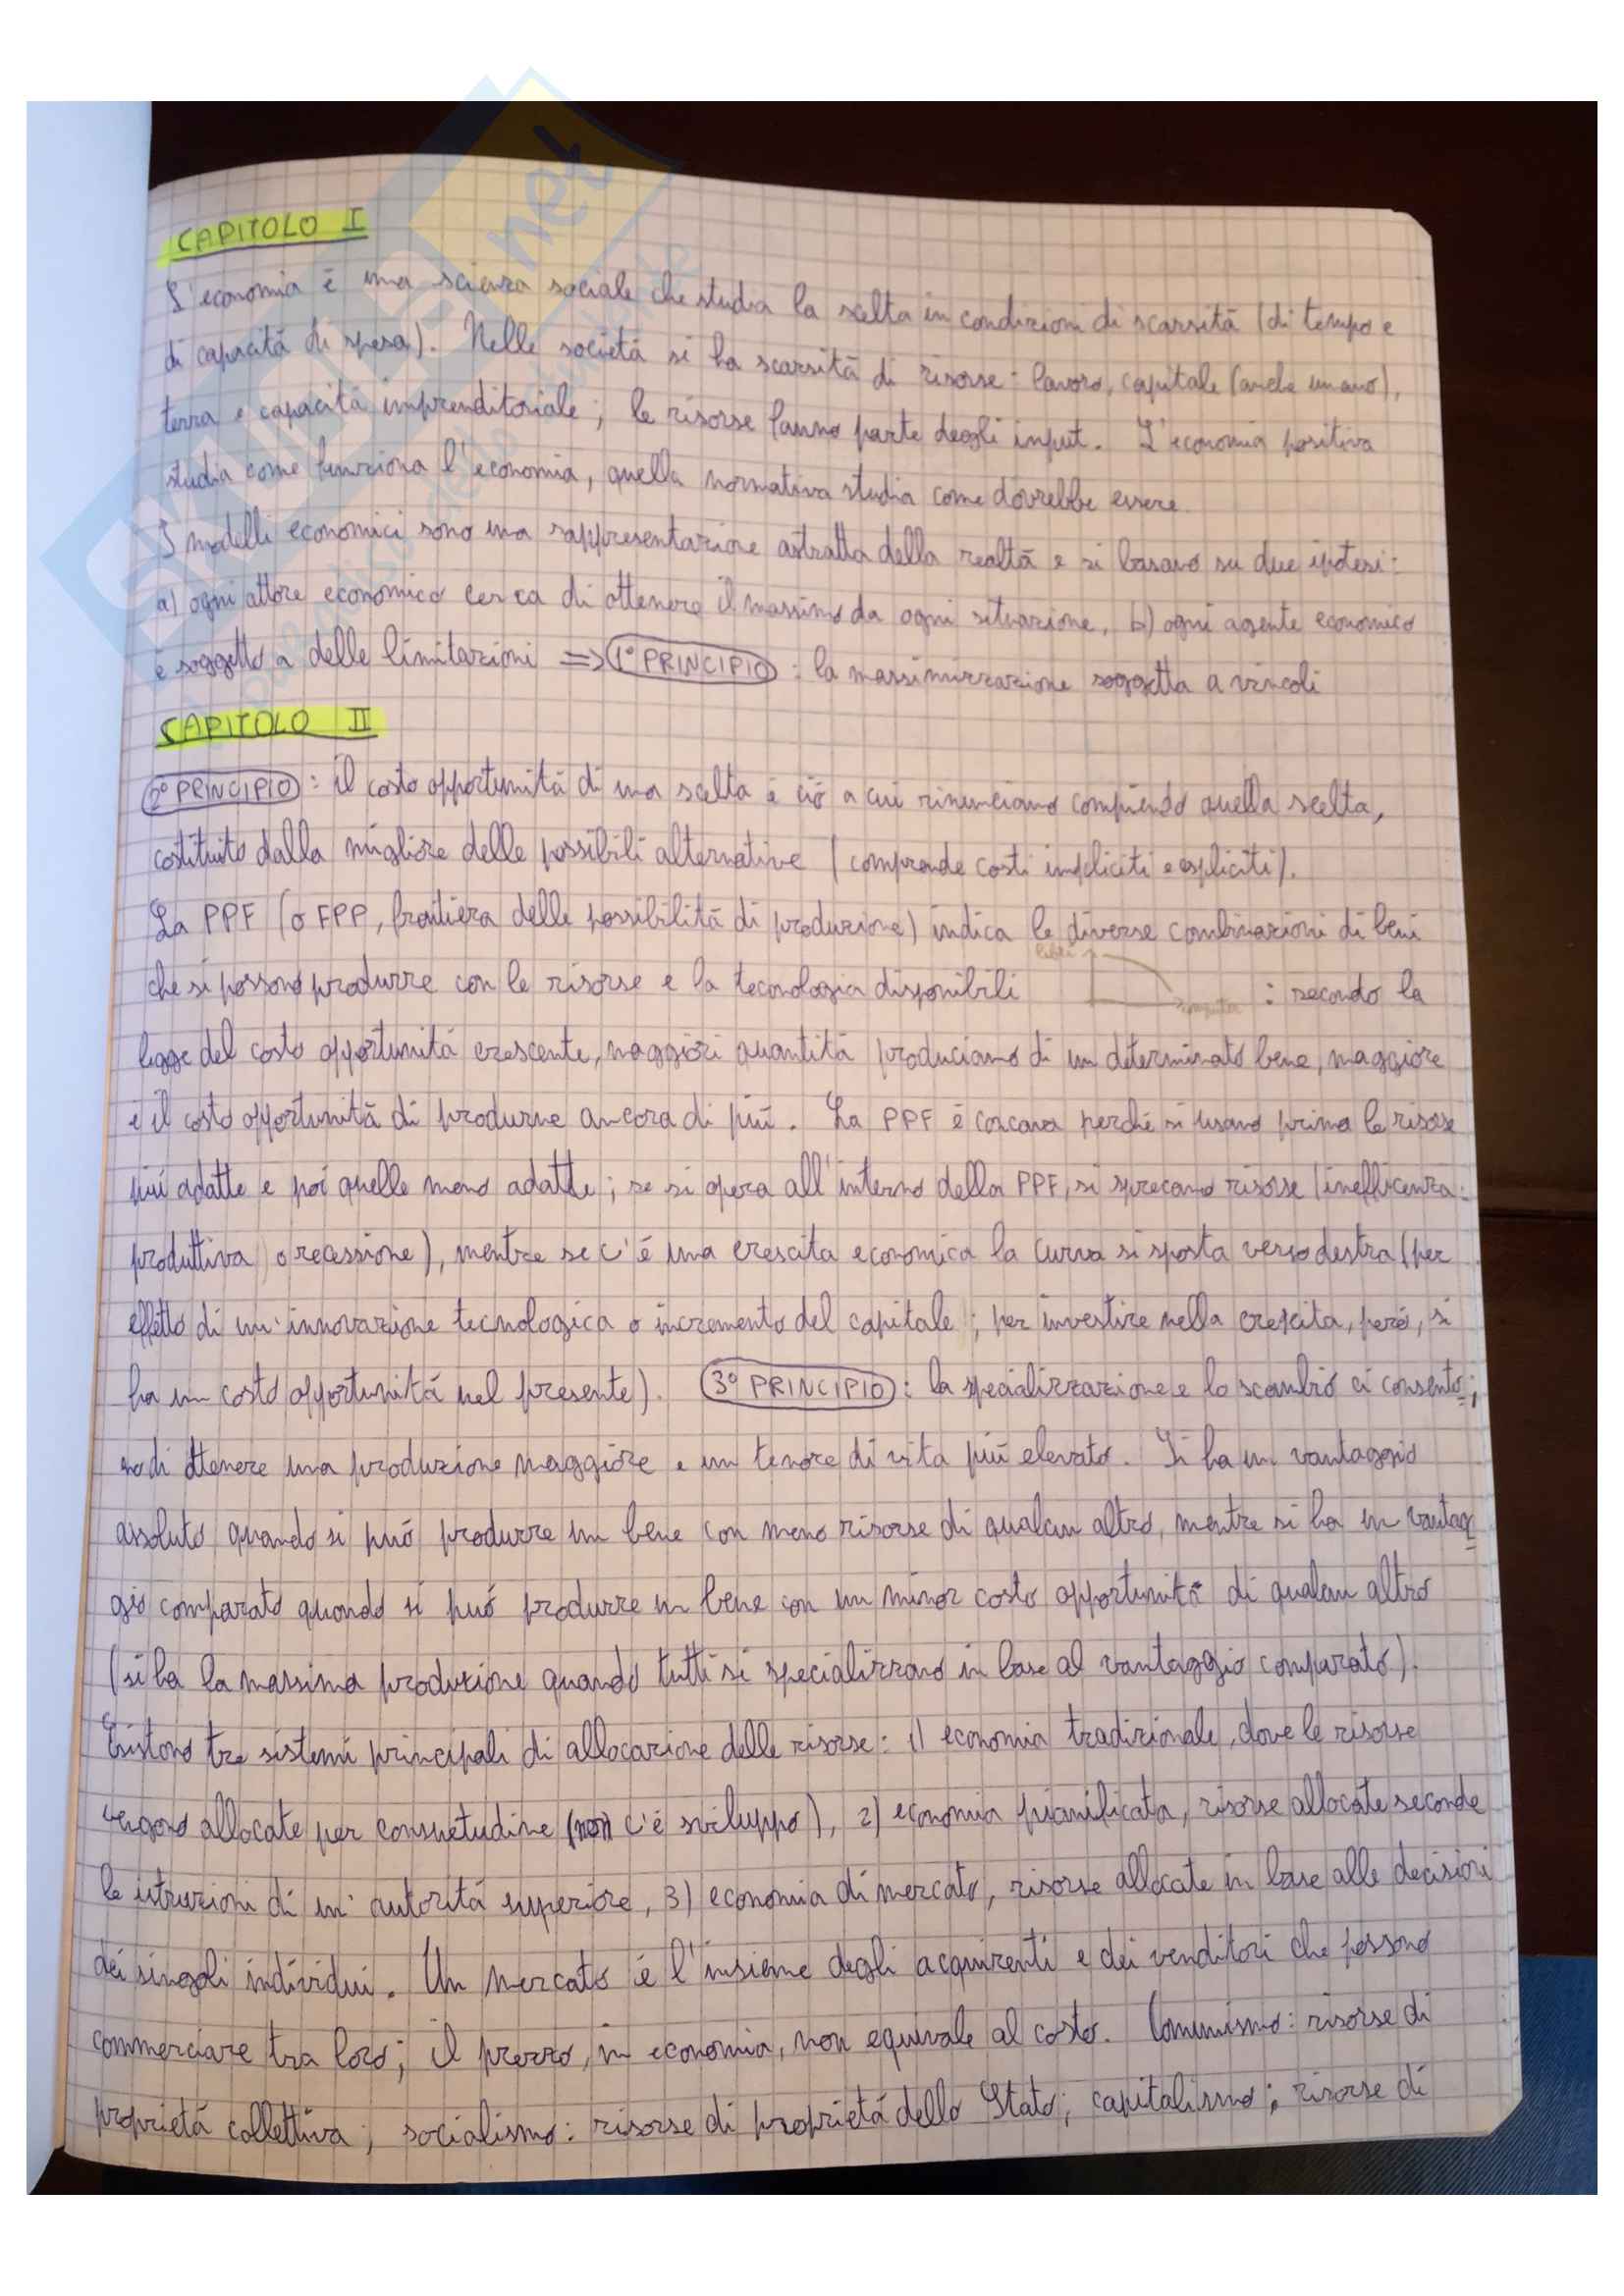 CAPITOLO I
L'economia è una scienza sociale che studia la scelta in condizioni di scarsità (di tempo e
di capacità di spesa). Nelle società si ha scarsità di risorse: lavoro, capitale (anche umano),
terra e capacità imprenditoriale; le risorse fanno parte degli input. L'economia positiva
studia come funziona l'economia, quella normativa studia come dovrebbe essere.
I modelli economici sono una rappresentazione astratta della realtà e si basano su due ipotesi:
a) ogni attore economico cerca di ottenere il massimo da ogni situazione, b) ogni agente economico
è soggetto a delle limitazioni => 1° PRINCIPIO : la massimizzazione soggetta a vincoli
CAPITOLO II
2° PRINCIPIO : il costo opportunità di una scelta è ciò a cui rinunciamo compiendo quella scelta,
costituito dalla migliore delle possibili alternative (comprende costi impliciti e espliciti).
La PPF (o FPP, frontiera delle possibilità di produzione) indica le diverse combinazioni di beni
che si possono produrre con le risorse e la tecnologia disponibili : secondo la
legge del costo opportunità crescente, maggiori quantità produciamo di un determinato bene, maggiore
è il costo opportunità di produrne ancora di più. La PPF è concava perché si usano prima le risorse
più adatte e poi quelle meno adatte; se si opera all'interno della PPF, si sprecano risorse (inefficienza
produttiva o recessione), mentre se c'è una crescita economica la curva si sposta verso destra (per
effetto di un'innovazione tecnologica o incremento del capitale; per investire nella crescita, però, si
ha un costo opportunità nel presente). 3° PRINCIPIO : la specializzazione e lo scambio ci consento
no di ottenere una produzione maggiore e un tenore di vita più elevato. Si ha un vantaggio
assoluto quando si può produrre un bene con meno risorse di qualcun altro, mentre si ha un vantag
gio comparato quando si può produrre un bene con un minor costo opportunità di qualcun altro
(si ha la massima produzione quando tutti si specializzano in base al vantaggio comparato).
Esistono tre sistemi principali di allocazione delle risorse: 1) economia tradizionale, dove le risorse
vengono allocate per consuetudine (non c'è sviluppo), 2) economia pianificata, risorse allocate secondo
le istruzioni di un'autorità superiore, 3) economia di mercato, risorse allocate in base alle decisioni
dei singoli individui. Un mercato è l'insieme degli acquirenti e dei venditori che possono
commerciare tra loro; il prezzo, in economia, non equivale al costo. Comunismo: risorse di
proprietà collettiva; socialismo: risorse di proprietà dello Stato; capitalismo: risorse di